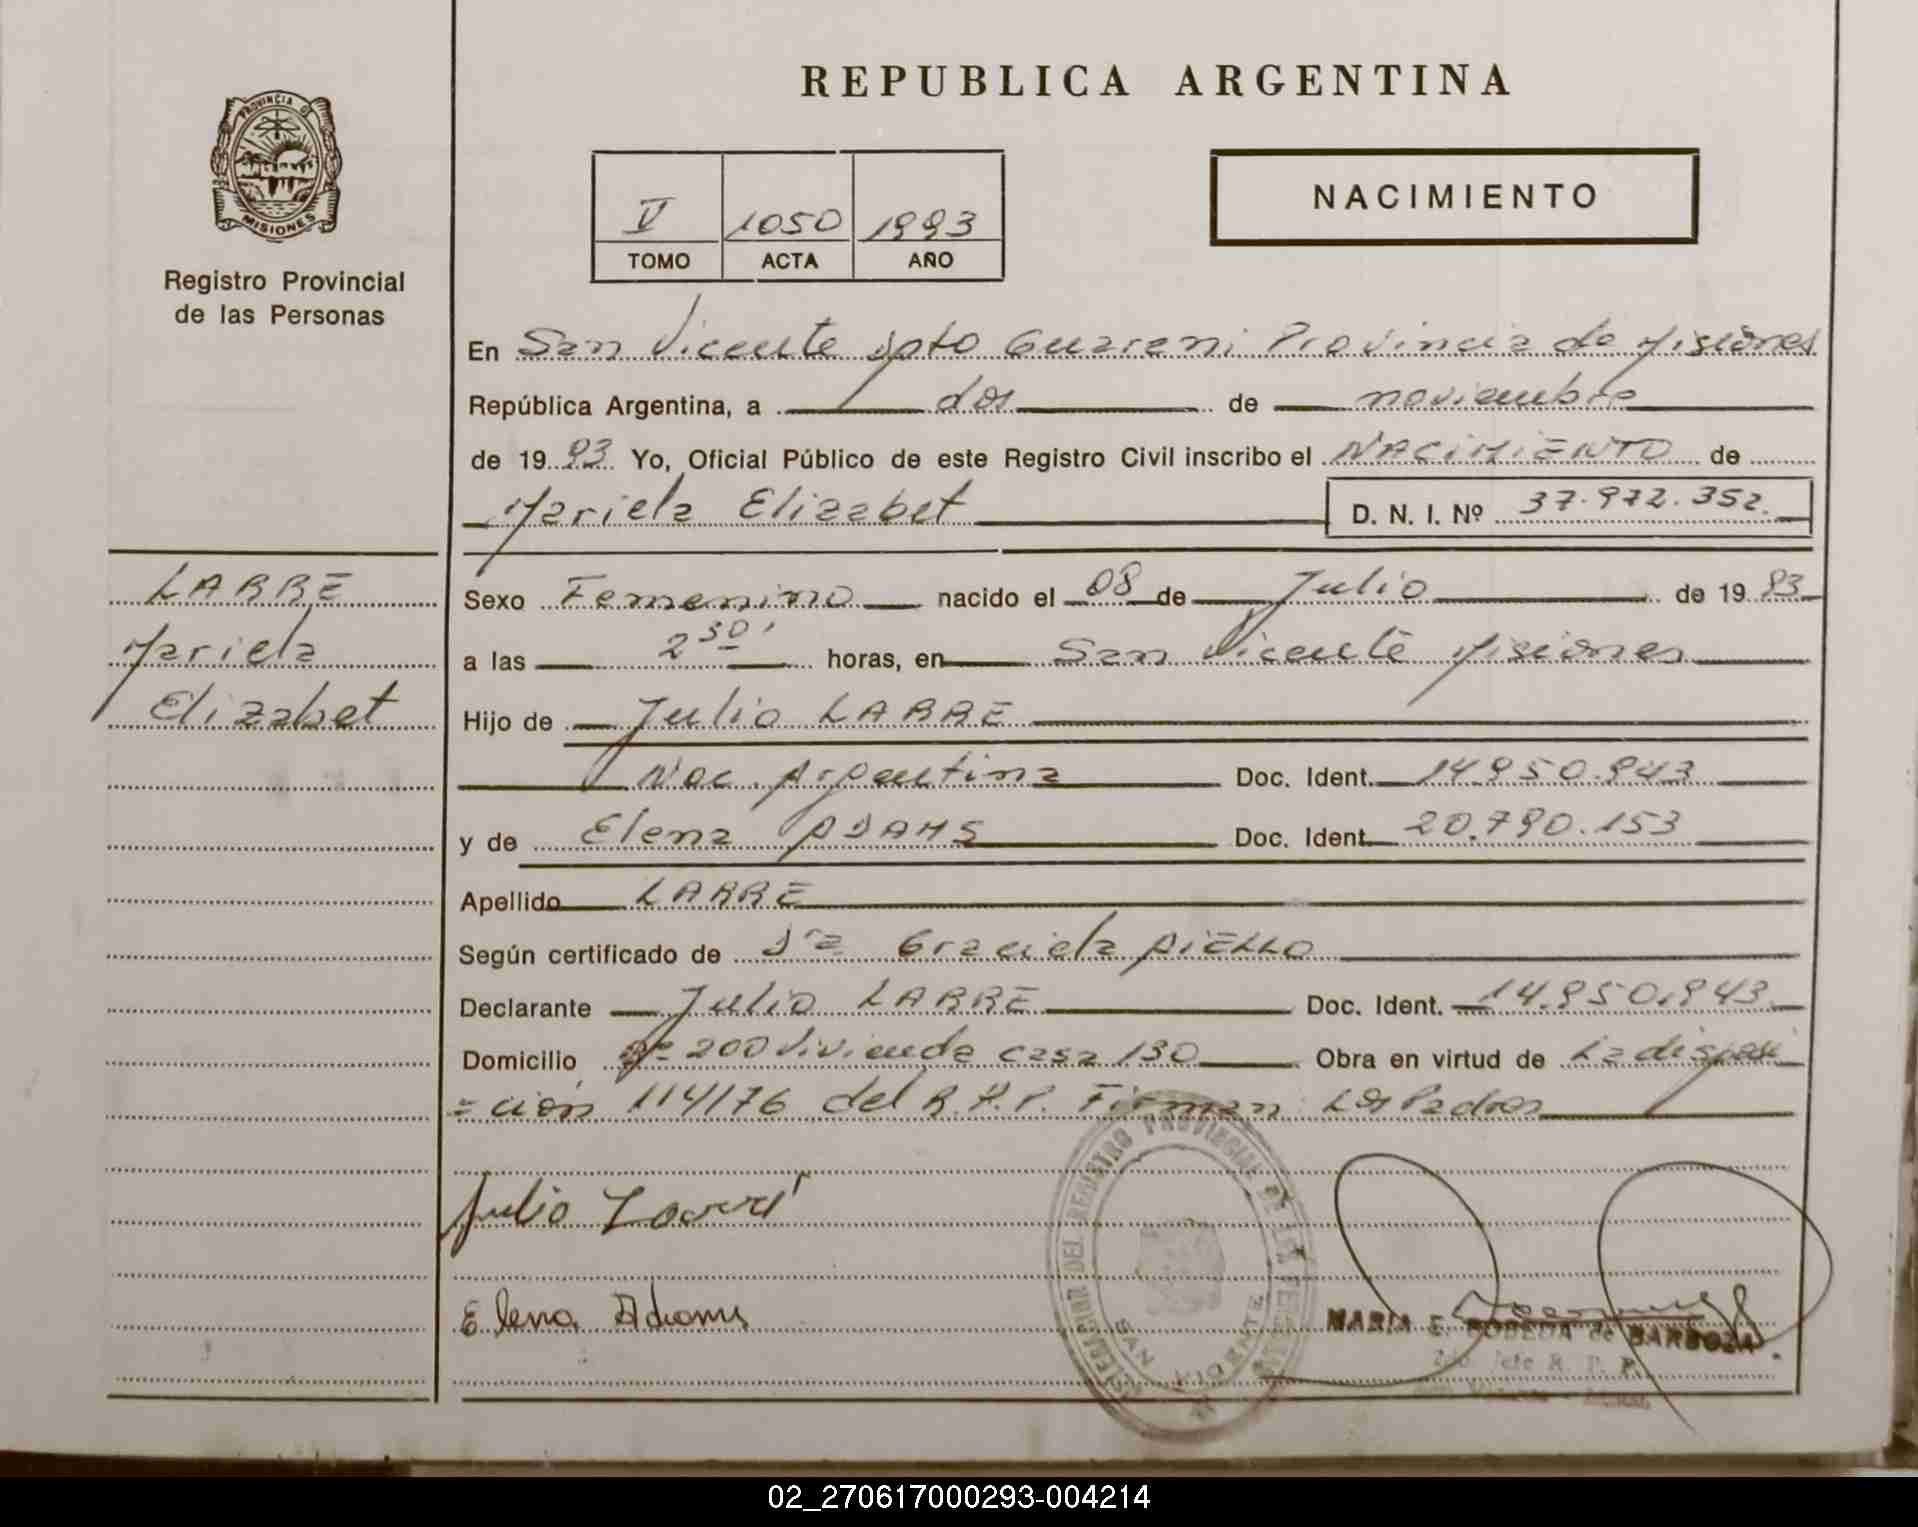 REPUBLICA ARGENTINA
PROVINCIA DE
MISIONES
Registro Provincial
de las Personas
V 1050 1993
TOMO ACTA AÑO
NACIMIENTO
En San Vicente Dpto Guarani Provincia de Misiones
República Argentina, a dos de noviembre
de 1993 Yo, Oficial Público de este Registro Civil inscribo el NACIMIENTO de
Mariela Elizabet D. N. I. Nº 37.972.352.
LARRE
Mariela
Elizabet
Sexo Femenino nacido el 08 de Julio de 1993
a las 2 30' horas, en San Vicente Misiones
Hijo de Julio LARRE
Nac. Argentina Doc. Ident. 14.950.943
y de Elena ADAMS Doc. Ident. 20.790.153
Apellido LARRE
Según certificado de Dra Graciela AIELLO
Declarante Julio LARRE Doc. Ident. 14.950.943
Domicilio Bº 200 Vivienda casa 130 Obra en virtud de La disposi
=cion 114/76 del R.P.P. Firman Los Padres
Julio Larre
Elena Adams
DEL REGISTRO PROVINCIAL DE LAS PERSONAS
SAN VICENTE
MARIA E. POREDA de BARBOZA
2do. Jefe R. P. P.
02_270617000293-004214